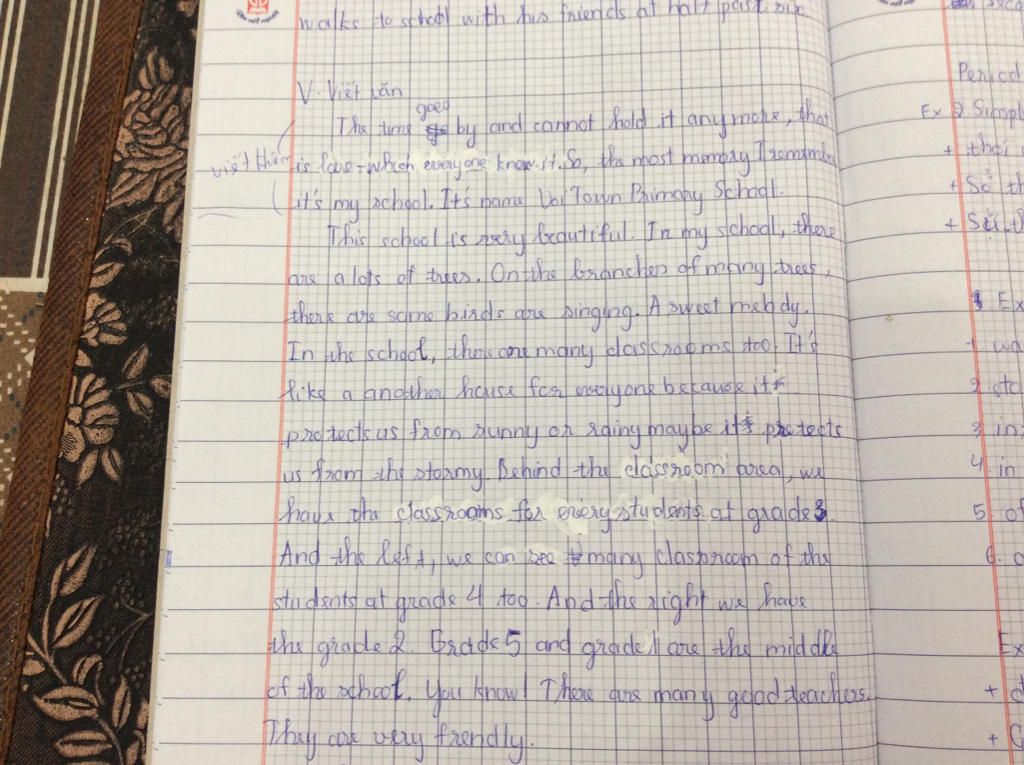 walks to school with his friends at half past six.
V. Viết văn
goes
The time by and cannot hold it any more, that
viết thêm
is love - which everyone know it. So, the most memory I remember
it's my school. It's name Voi Town Primary School.
This school is very beautiful. In my school, there
are a lots of trees. On the branches of many trees,
there are some birds are singing. A sweet melody.
In the school, there are many classrooms too. It's
like a another house for everyone because it
protects us from sunny or rainy maybe it protects
us from the stormy. Behind the classroom area, we
have the classrooms for every students at grade 3.
And the left, we can see many classroom of the
students at grade 4 too. And the right we have
the grade 2. Grade 5 and grade 1 are the middle
of the school. You know! There are many good teachers.
They are very frendly.
Period
Ex 2. Simpl
+ thói
+ Số th
+ Sự
Ex
1 wa
2 sto
3 in
4. in
5. of
6.
Ex
+ d
+